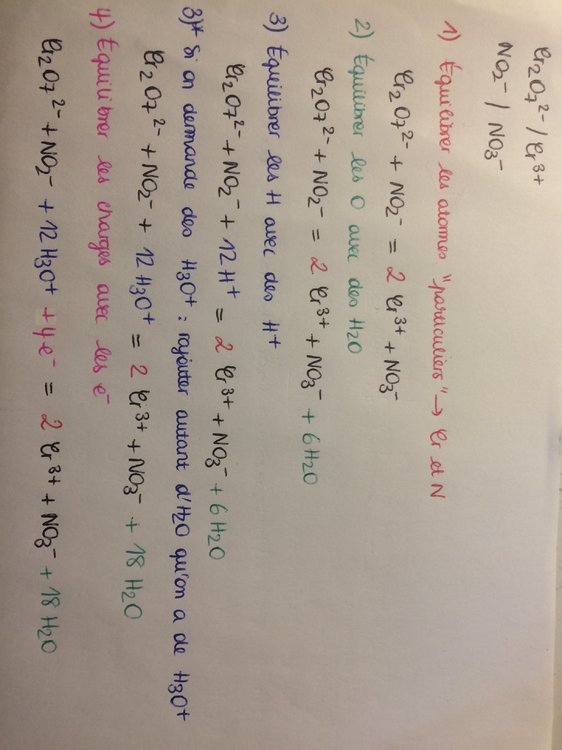 Cr2O7²⁻ / Cr³⁺
NO2⁻ / NO3⁻
1) Équilibrer les atomes "particuliers" → Cr et N
Cr2O7²⁻ + NO2⁻ = 2 Cr³⁺ + NO3⁻
2) Équilibrer les O avec des H2O
Cr2O7²⁻ + NO2⁻ = 2 Cr³⁺ + NO3⁻ + 6H2O
3) Équilibrer les H avec des H⁺
Cr2O7²⁻ + NO2⁻ + 12H⁺ = 2 Cr³⁺ + NO3⁻ + 6H2O
3)* Si on demande des H3O⁺ : rajouter autant d'H2O qu'on a de H3O⁺
Cr2O7²⁻ + NO2⁻ + 12H3O⁺ = 2 Cr³⁺ + NO3⁻ + 18H2O
4) Équilibrer les charges avec les e⁻
Cr2O7²⁻ + NO2⁻ + 12H3O⁺ + 4e⁻ = 2 Cr³⁺ + NO3⁻ + 18H2O